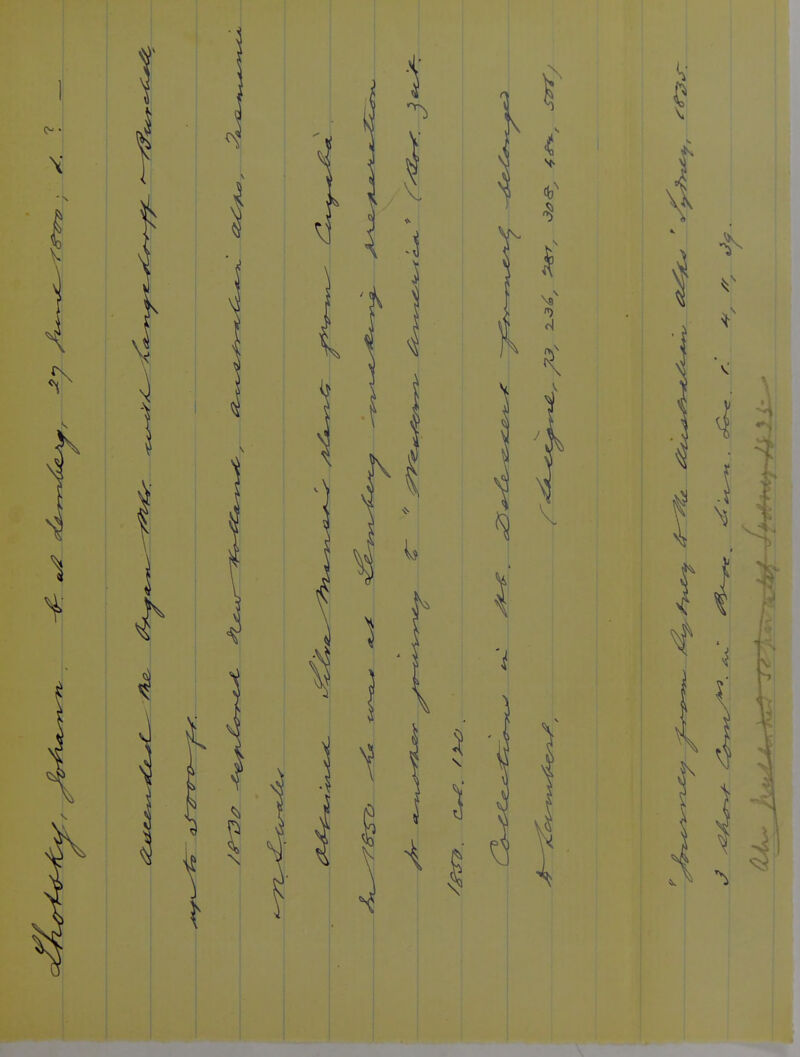 Lhotsky, Johann. b. at Lemberg, 27 June 1800; d. ? —
Ascended the Organ Mts. with Langsdorff & Burchell
up to 5000 ft.
1830 explored New Holland, Australian Alps, Tasmania
& N.S. Wales
Obtained Silva Manso's plants from Cuyabá.
In 1850 he was at Lemberg making preparation
for another journey to "Western America" (Bot. Zeit.
1850. col. 120.
Collections in Hb. Delessert formerly belonged
to Lambert, (Lasègue, 73, 236, 281, 308, 484, 504)
"Journey from Sydney to the Australian Alps" Sydney, 1835.
3 short Comm's. in Proc. Linn. Soc. i. 4, 11, 39.
Also published separately Sydney 1835